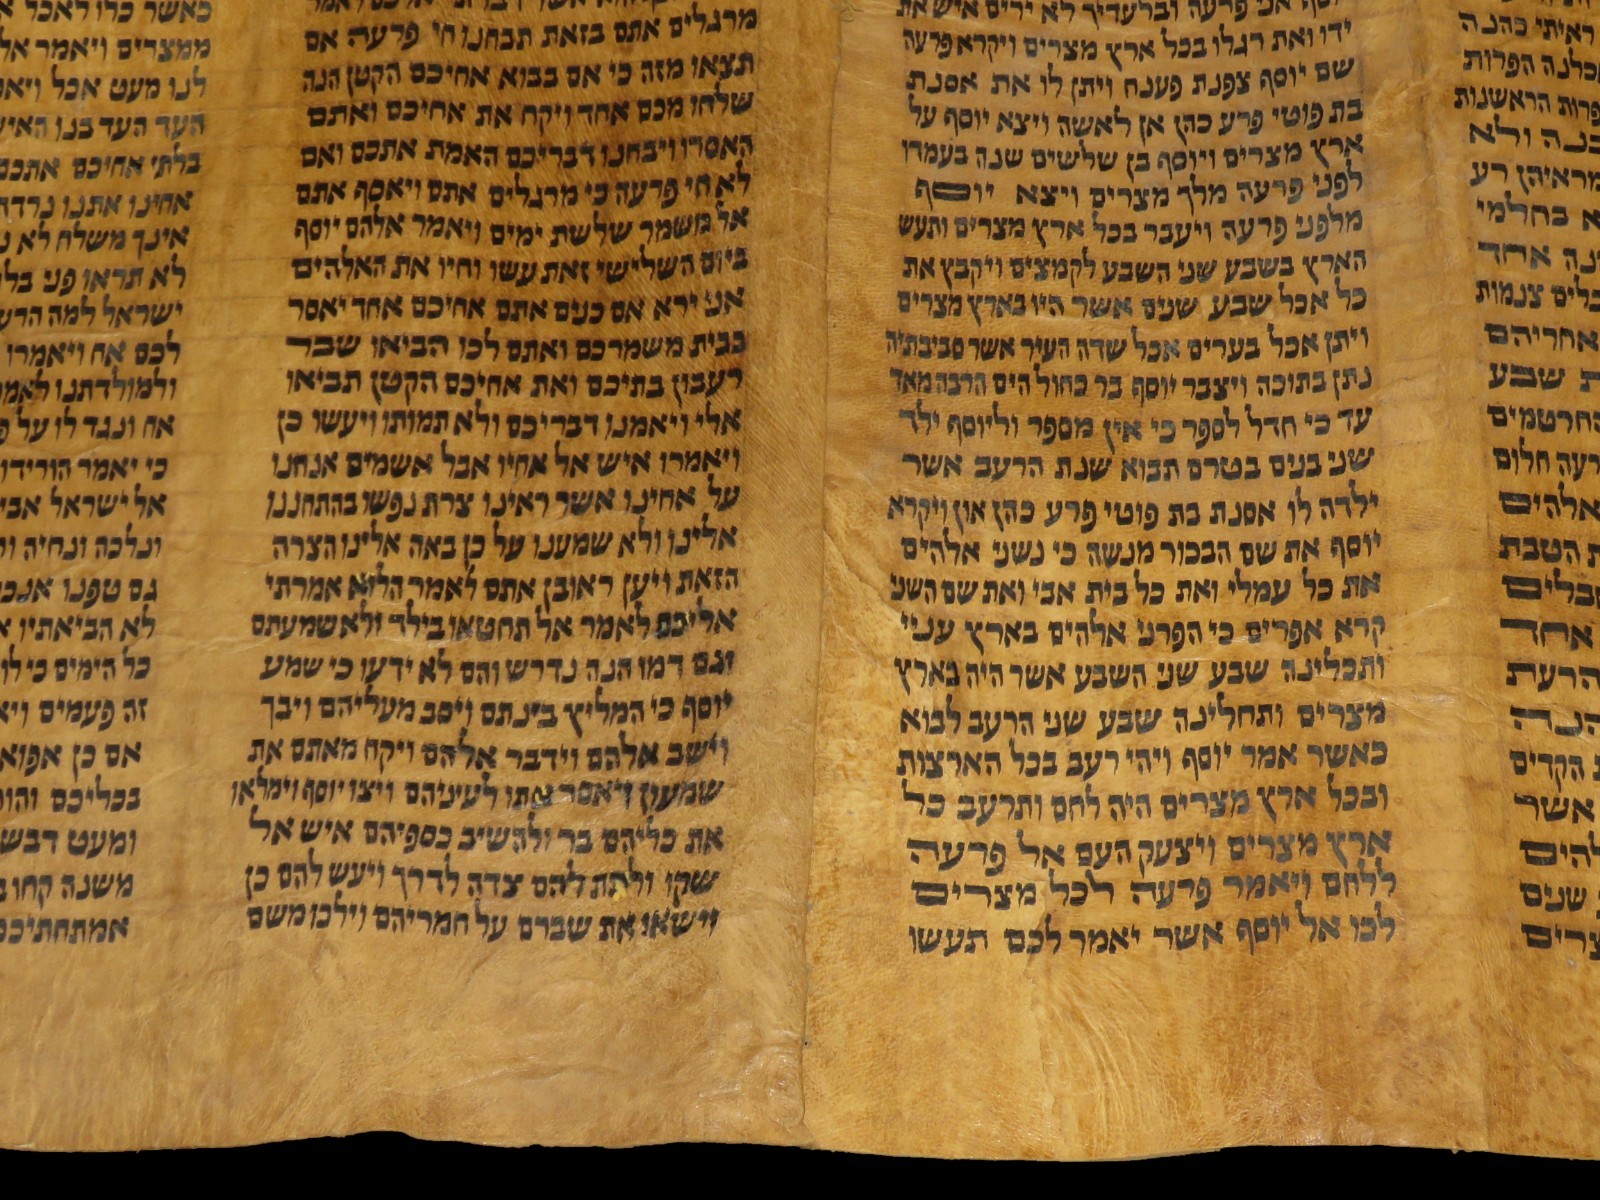 ראיתי כהנה
אכלנה הפרות
פרות הראשנות
בנה ולא
מראיהן רע
א בחלמי
נה אחד
בלים צנמות
אחריהם
ת שבע
החרטמים
רעה חלום
אלהים
ת הטבת
בלים
אחד
הרעת
הנה
הקדים
אשר
להים
שנים
צרים
יוסף אני פרעה ובלעדיך לא ירים איש את
ידו ואת רגלו בכל ארץ מצרים ויקרא פרעה
שם יוסף צפנת פענח ויתן לו את אסנת
בת פוטי פרע כהן אן לאשה ויצא יוסף על
ארץ מצרים ויוסף בן שלשים שנה בעמדו
לפני פרעה מלך מצרים ויצא יוסף
מלפני פרעה ויעבר בכל ארץ מצרים ותעש
הארץ בשבע שני השבע לקמצים ויקבץ את
כל אכל שבע שנים אשר היו בארץ מצרים
ויתן אכל בערים אכל שדה העיר אשר סביבתיה
נתן בתוכה ויצבר יוסף בר כחול הים הרבה מאד
עד כי חדל לספר כי אין מספר וליוסף ילד
שני בנים בטרם תבוא שנת הרעב אשר
ילדה לו אסנת בת פוטי פרע כהן און ויקרא
יוסף את שם הבכור מנשה כי נשני אלהים
את כל עמלי ואת כל בית אבי ואת שם השני
קרא אפרים כי הפרני אלהים בארץ עניי
ותכלינה שבע שני השבע אשר היה בארץ
מצרים ותחלינה שבע שני הרעב לבוא
כאשר אמר יוסף ויהי רעב בכל הארצות
ובכל ארץ מצרים היה לחם ותרעב כל
ארץ מצרים ויצעק העם אל פרעה
ללחם ויאמר פרעה לכל מצרים
לכו אל יוסף אשר יאמר לכם תעשו
מרגלים אתם בזאת תבחנו חי פרעה אם
תצאו מזה כי אם בבוא אחיכם הקטן הנה
שלחו מכם אחד ויקח את אחיכם ואתם
האסרו ויבחנו דבריכם האמת אתכם ואם
לא חי פרעה כי מרגלים אתם ויאסף אתם
אל משמר שלשת ימים ויאמר אלהם יוסף
ביום השלישי זאת עשו וחיו את האלהים
אני ירא אם כנים אתם אחיכם אחד יאסר
בבית משמרכם ואתם לכו הביאו שבר
רעבון בתיכם ואת אחיכם הקטן תביאו
אלי ויאמנו דבריכם ולא תמותו ויעשו כן
ויאמרו איש אל אחיו אבל אשמים אנחנו
על אחינו אשר ראינו צרת נפשו בהתחננו
אלינו ולא שמענו על כן באה אלינו הצרה
הזאת ויען ראובן אתם לאמר הלוא אמרתי
אליכם לאמר אל תחטאו בילד ולא שמעתם
וגם דמו הנה נדרש והם לא ידעו כי שמע
יוסף כי המליץ בינתם ויסב מעליהם ויבך
וישב אלהם וידבר אלהם ויקח מאתם את
שמעון ויאסר אתו לעיניהם ויצו יוסף וימלאו
את כליהם בר ולהשיב כספיהם איש אל
שקו ולתת להם צדה לדרך ויעש להם כן
וישאו את שברם על חמריהם וילכו משם
כאשר כלו לאכל
ממצרים ויאמר
לנו מעט אכל
העד העד בנו האיש
בלתי אחיכם אתכם
אחינו אתנו נרדה
אינך משלח לא
לא תראו פני
ישראל למה
לכם אח ויאמרו
ולמולדתנו לאמר
אח ונגד לו על
כי יאמר הורידו
אל ישראל אביו
ונלכה ונחיה
גם טפנו
לא הביאתיו
כל הימים כי
זה פעמים
אם כן אפוא
בכליכם
ומעט דבש
משנה קחו
אמתחתיכם